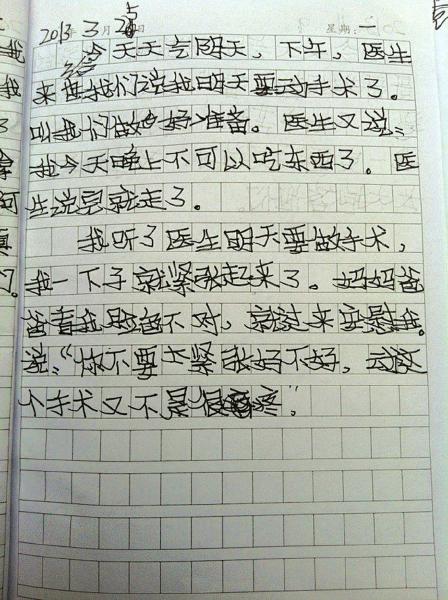 2013年3月25日 星期:一
今天天气阴天，下午，医生
来母我们说我明天要动手术了。
叫我们做好准备。医生又说:
我今天晚上不可以吃东西了。医
生说完就走了。
我听了医生明天要做手术，
我一下子就紧张起来了。妈妈爸
爸看我脸色不对，就过来安慰我。
说:“你不要太紧张好不好，动这
个手术又不是很疼”。